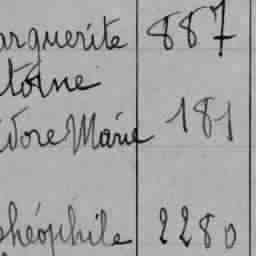 arguerite 887
toine
idore Marie 181
héophile 2280